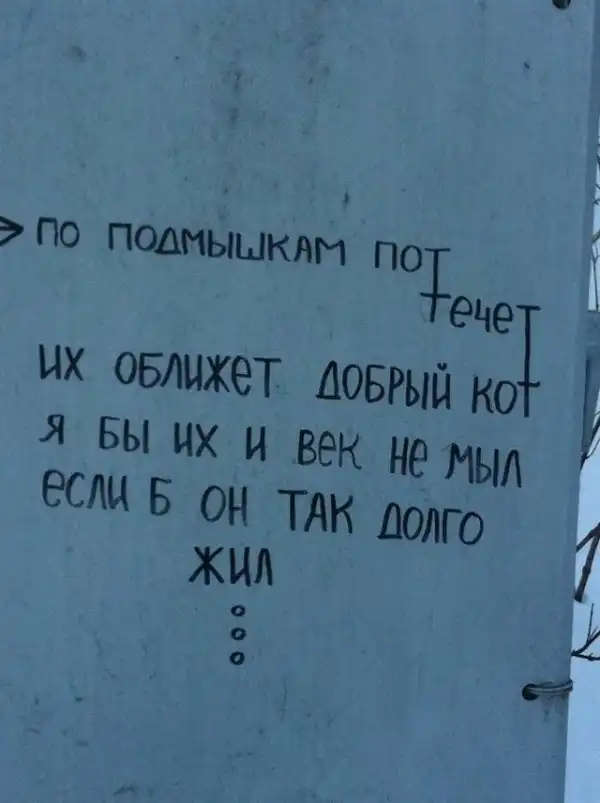 по подмышкам пот
течет
их оближет добрый кот
я бы их и век не мыл
если б он так долго
жил